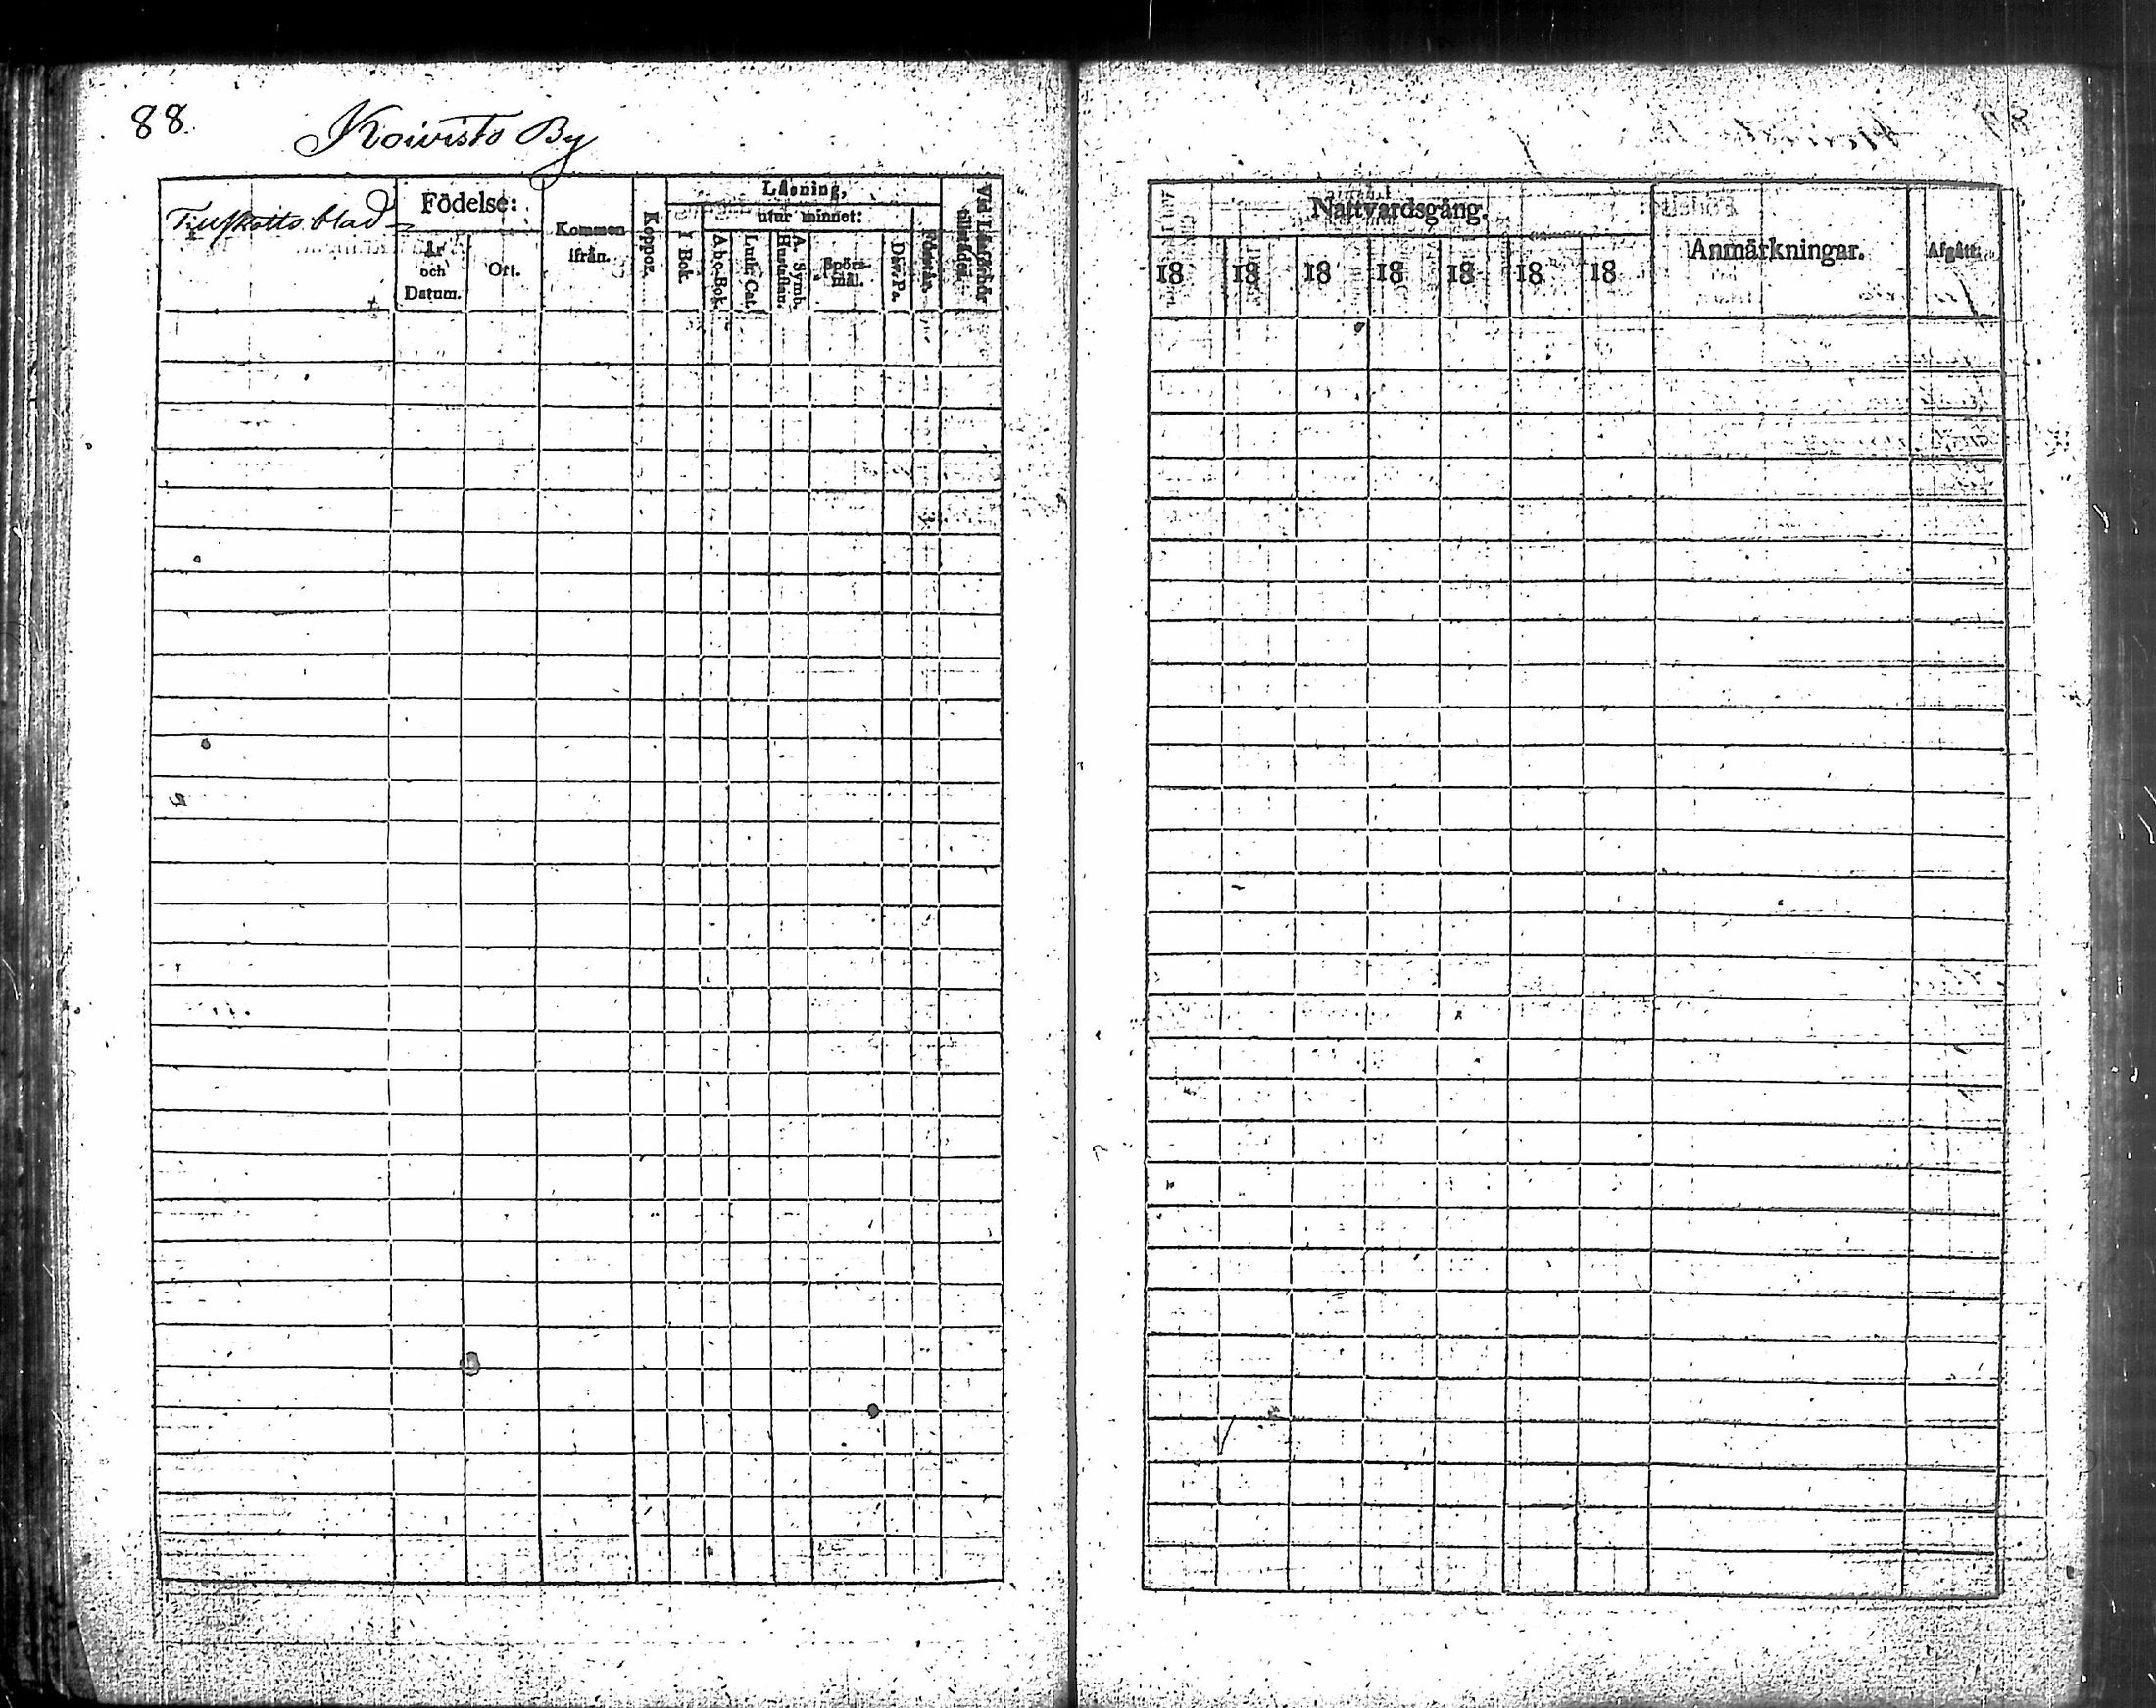 88
Koivisto By
Tillskotts blad
Födelse:
År
och
Datum.
Ort.
Kommen
ifrån.
Koppor.
Läsning,
utur minnet:
I Bok.
Abc-Bok.
Luth. Cat.
A. Symb.
Hustaflan.
Spörs-
mål.
Dav. Ps.
Förstår.
Vid Läsförhör
tillstädes.
Nattvardsgång.
18 18 18 18 18 18 18
Anmärkningar.
Afgått.